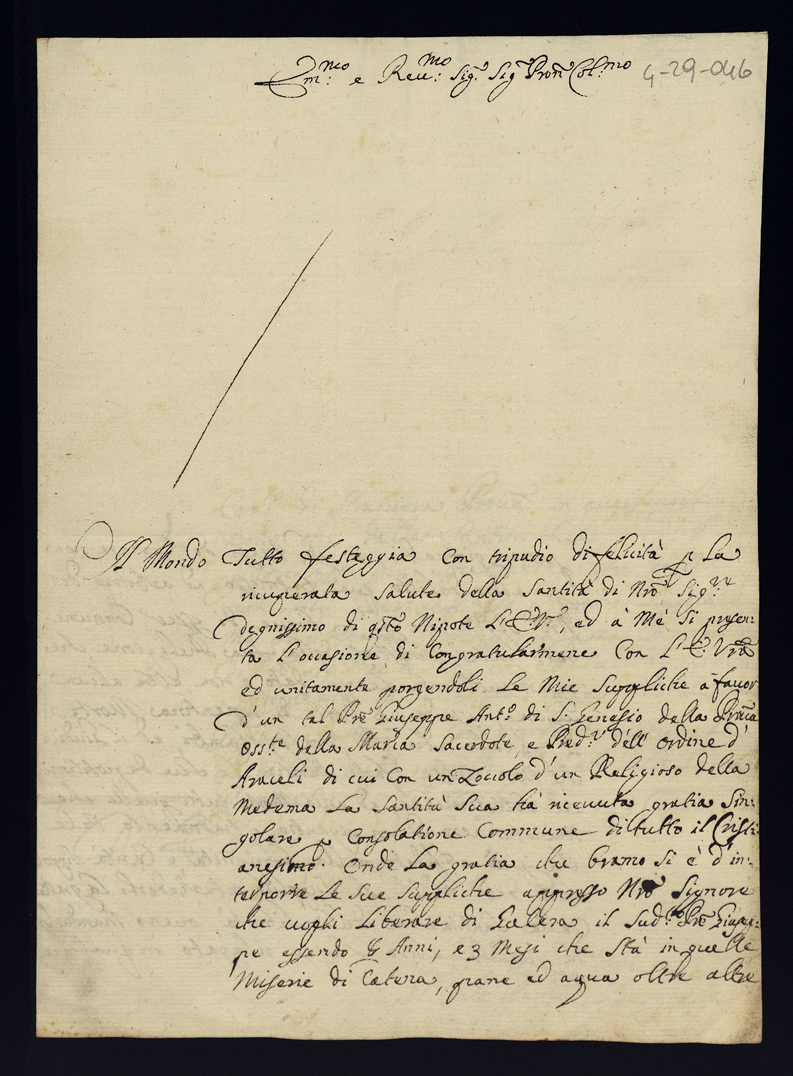 Em:mo e Reu:mo Sig:r Sig Pron Col:mo 4-29-046
Il Mondo Tutto festeggia con tripudio di felicità p La
ricuperata salute della Santità di Nro Sig:re
degnissimo di qsto Nipote L'E.V., ed à Mè si presen:
ta L'occasione di Congratularmene Con L'E: Vra
ed unitamente porgendoli Le Mie Suppliche a favor
d'un tal Pre Giuseppe Ant:o di S: Genesio della Prouca
Oss:te della Marca Sacerdote e Pred:r dell' Ordine d'
Araceli di cui Con un Zoccolo d'un Religioso della
Medema La Santità Sua hà riceuuta gratia Sin:
golare p Consolatione Commune di tutto il Cristi:
anesimo. Onde La gratia che bramo si è d'in:
terporre Le Sue Suppliche appresso Nro Signore
che uogli Liberare di Galera il Sud:to Pre Giusep:
pe essendo Anni, e 3 Mesi che Stà in quelle
Miserie di Catena, pane ed aqua oltre altre